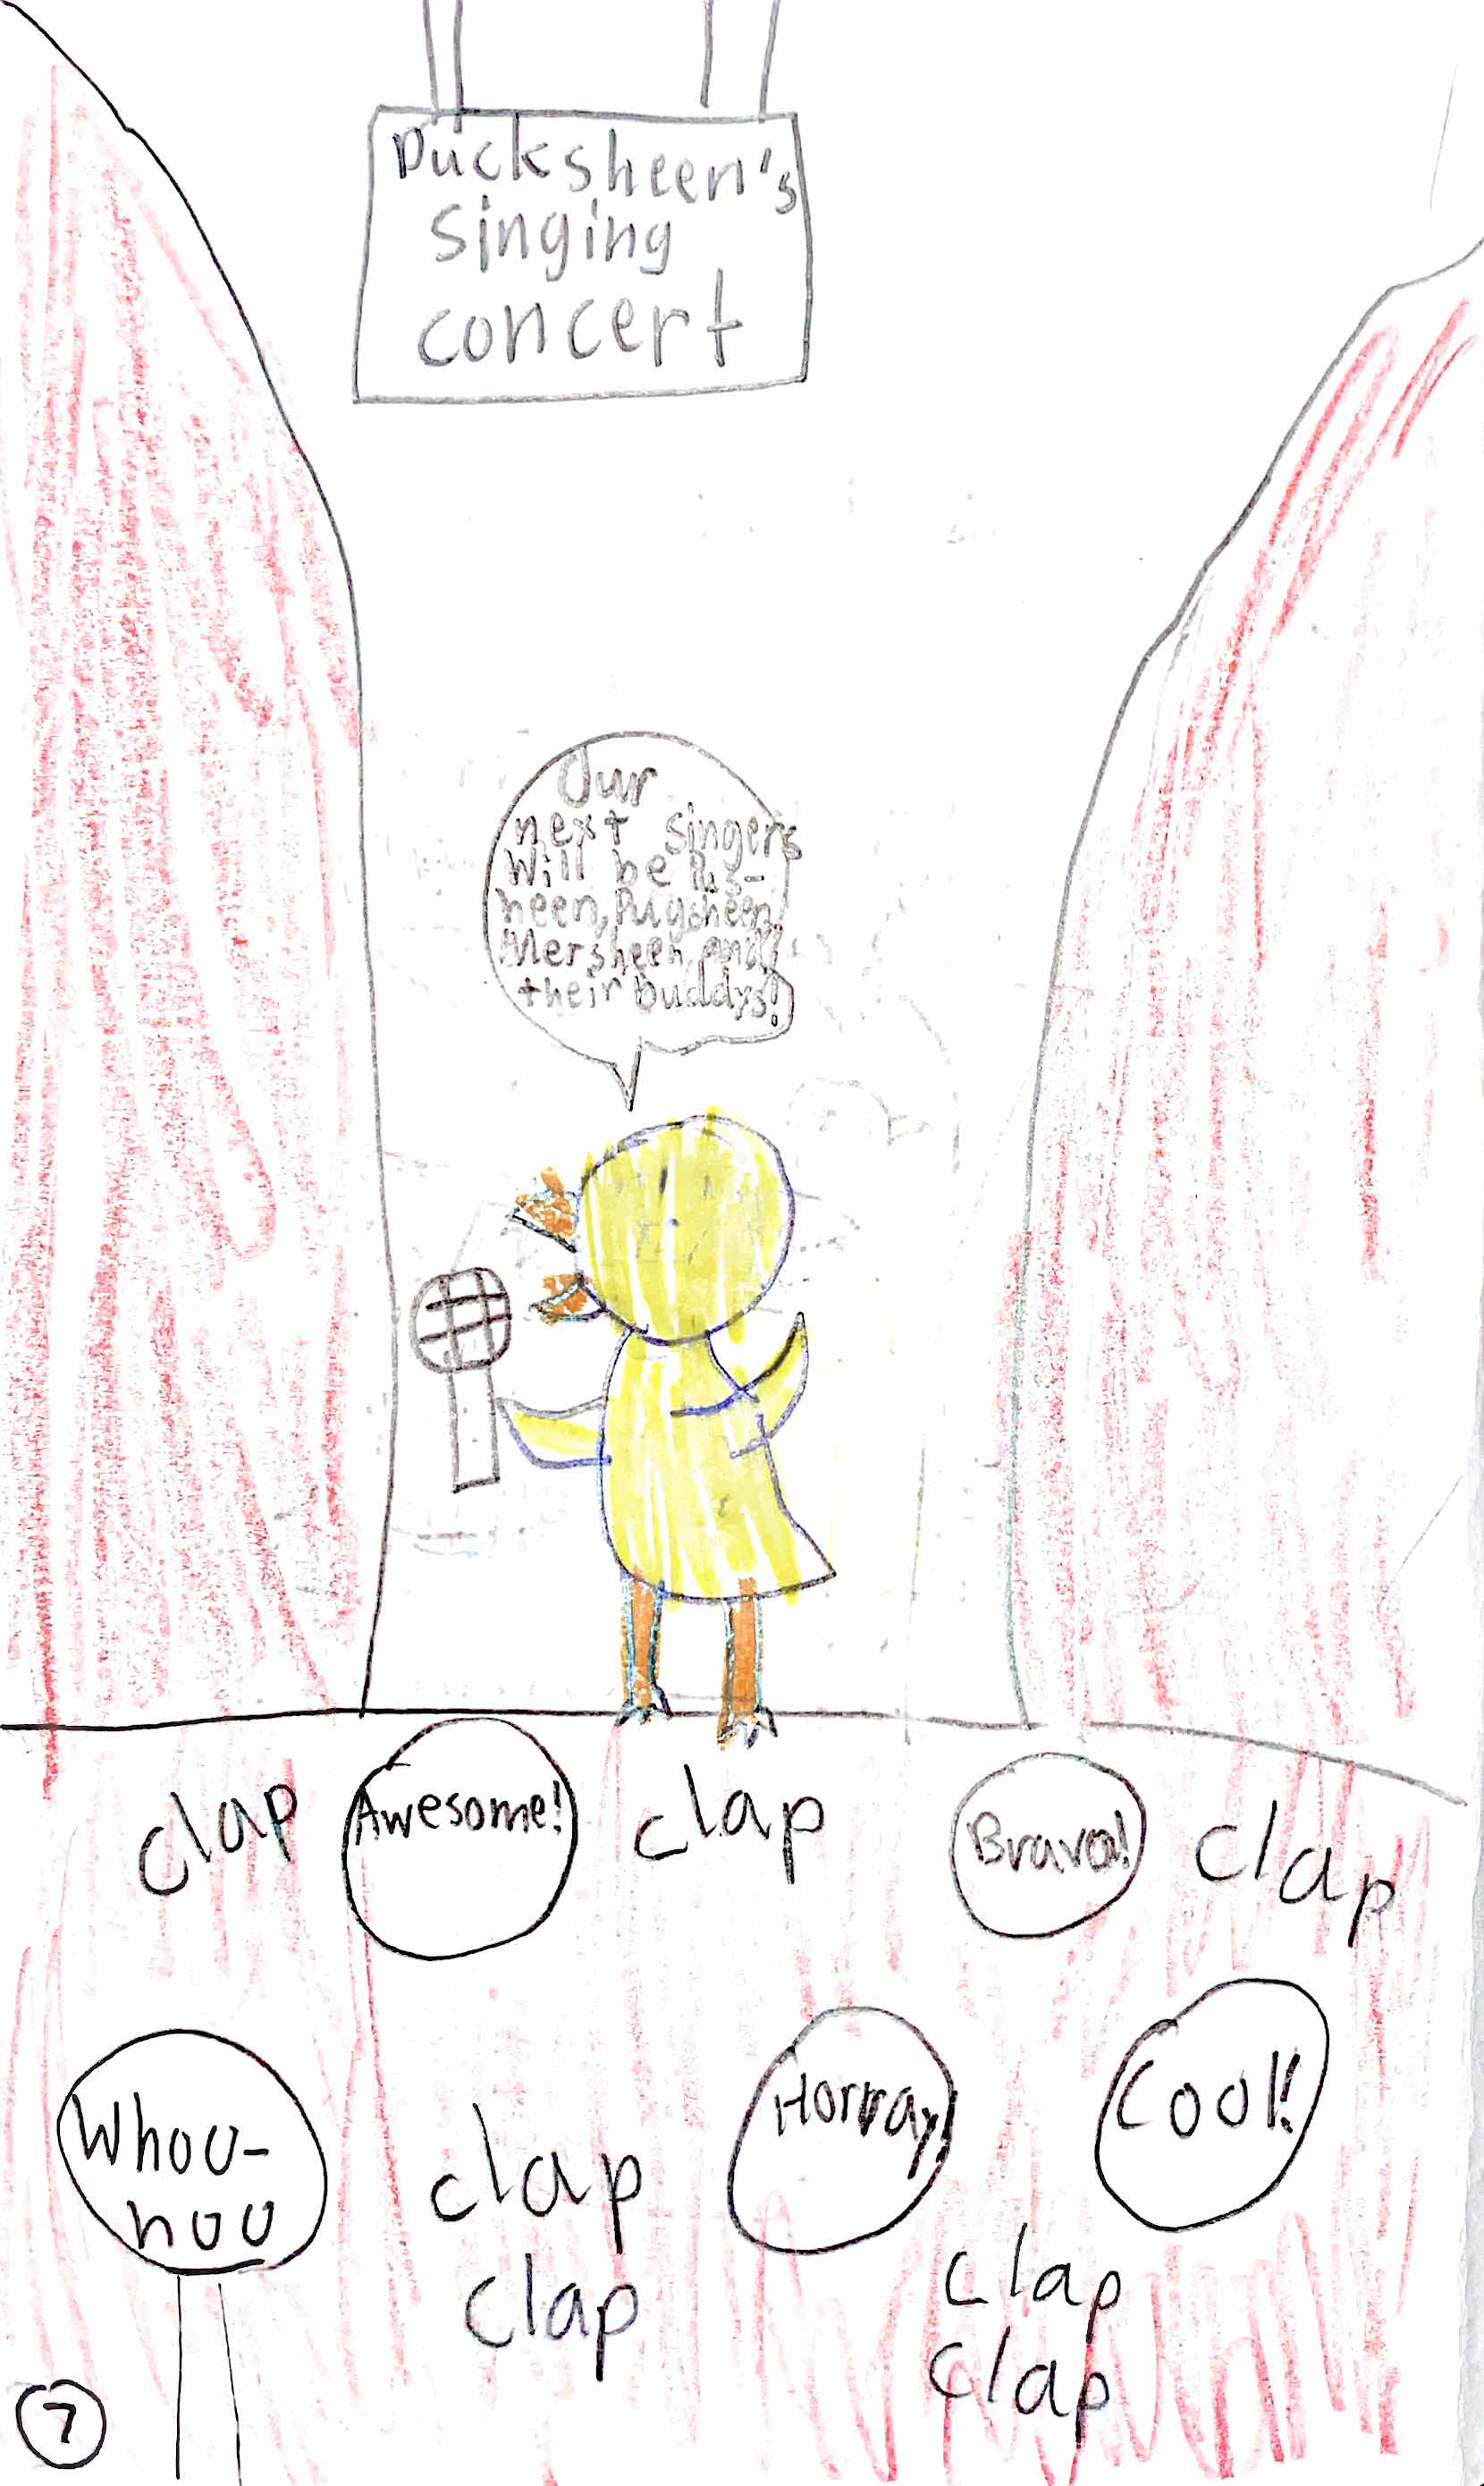 Ducksheen's
singing
concert
Our
next singers
will be Pus-
heen, Pugsheen,
Mersheen, and
their buddys!
clap
Awesome!
clap
Bravo!
clap
Whoo-
hoo
clap
clap
Horray!
Cool!
clap
clap
7